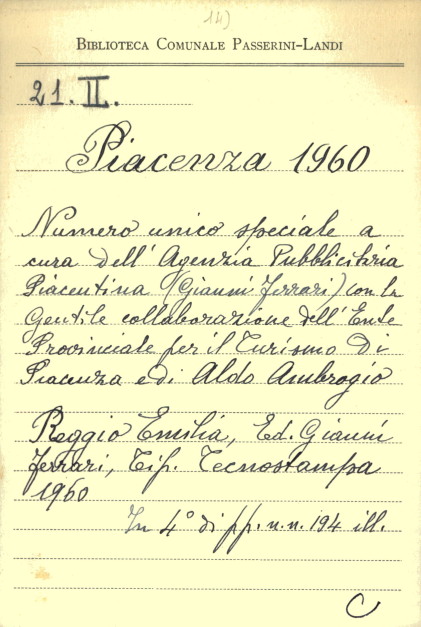 14)
BIBLIOTECA COMUNALE PASSERINI-LANDI
21. II.
Piacenza 1960
Numero unico speciale a
cura dell'Agenzia Pubblicitaria
Piacentina (Gianni Ferrari) con la
gentile collaborazione dell'Ente
Provinciale per il Turismo di
Piacenza e di Aldo Ambrogio
Reggio Emilia, Ed. Gianni
Ferrari, Tip. Tecnostampa
1960
In 4° di pp. n. n. 194 ill.
C